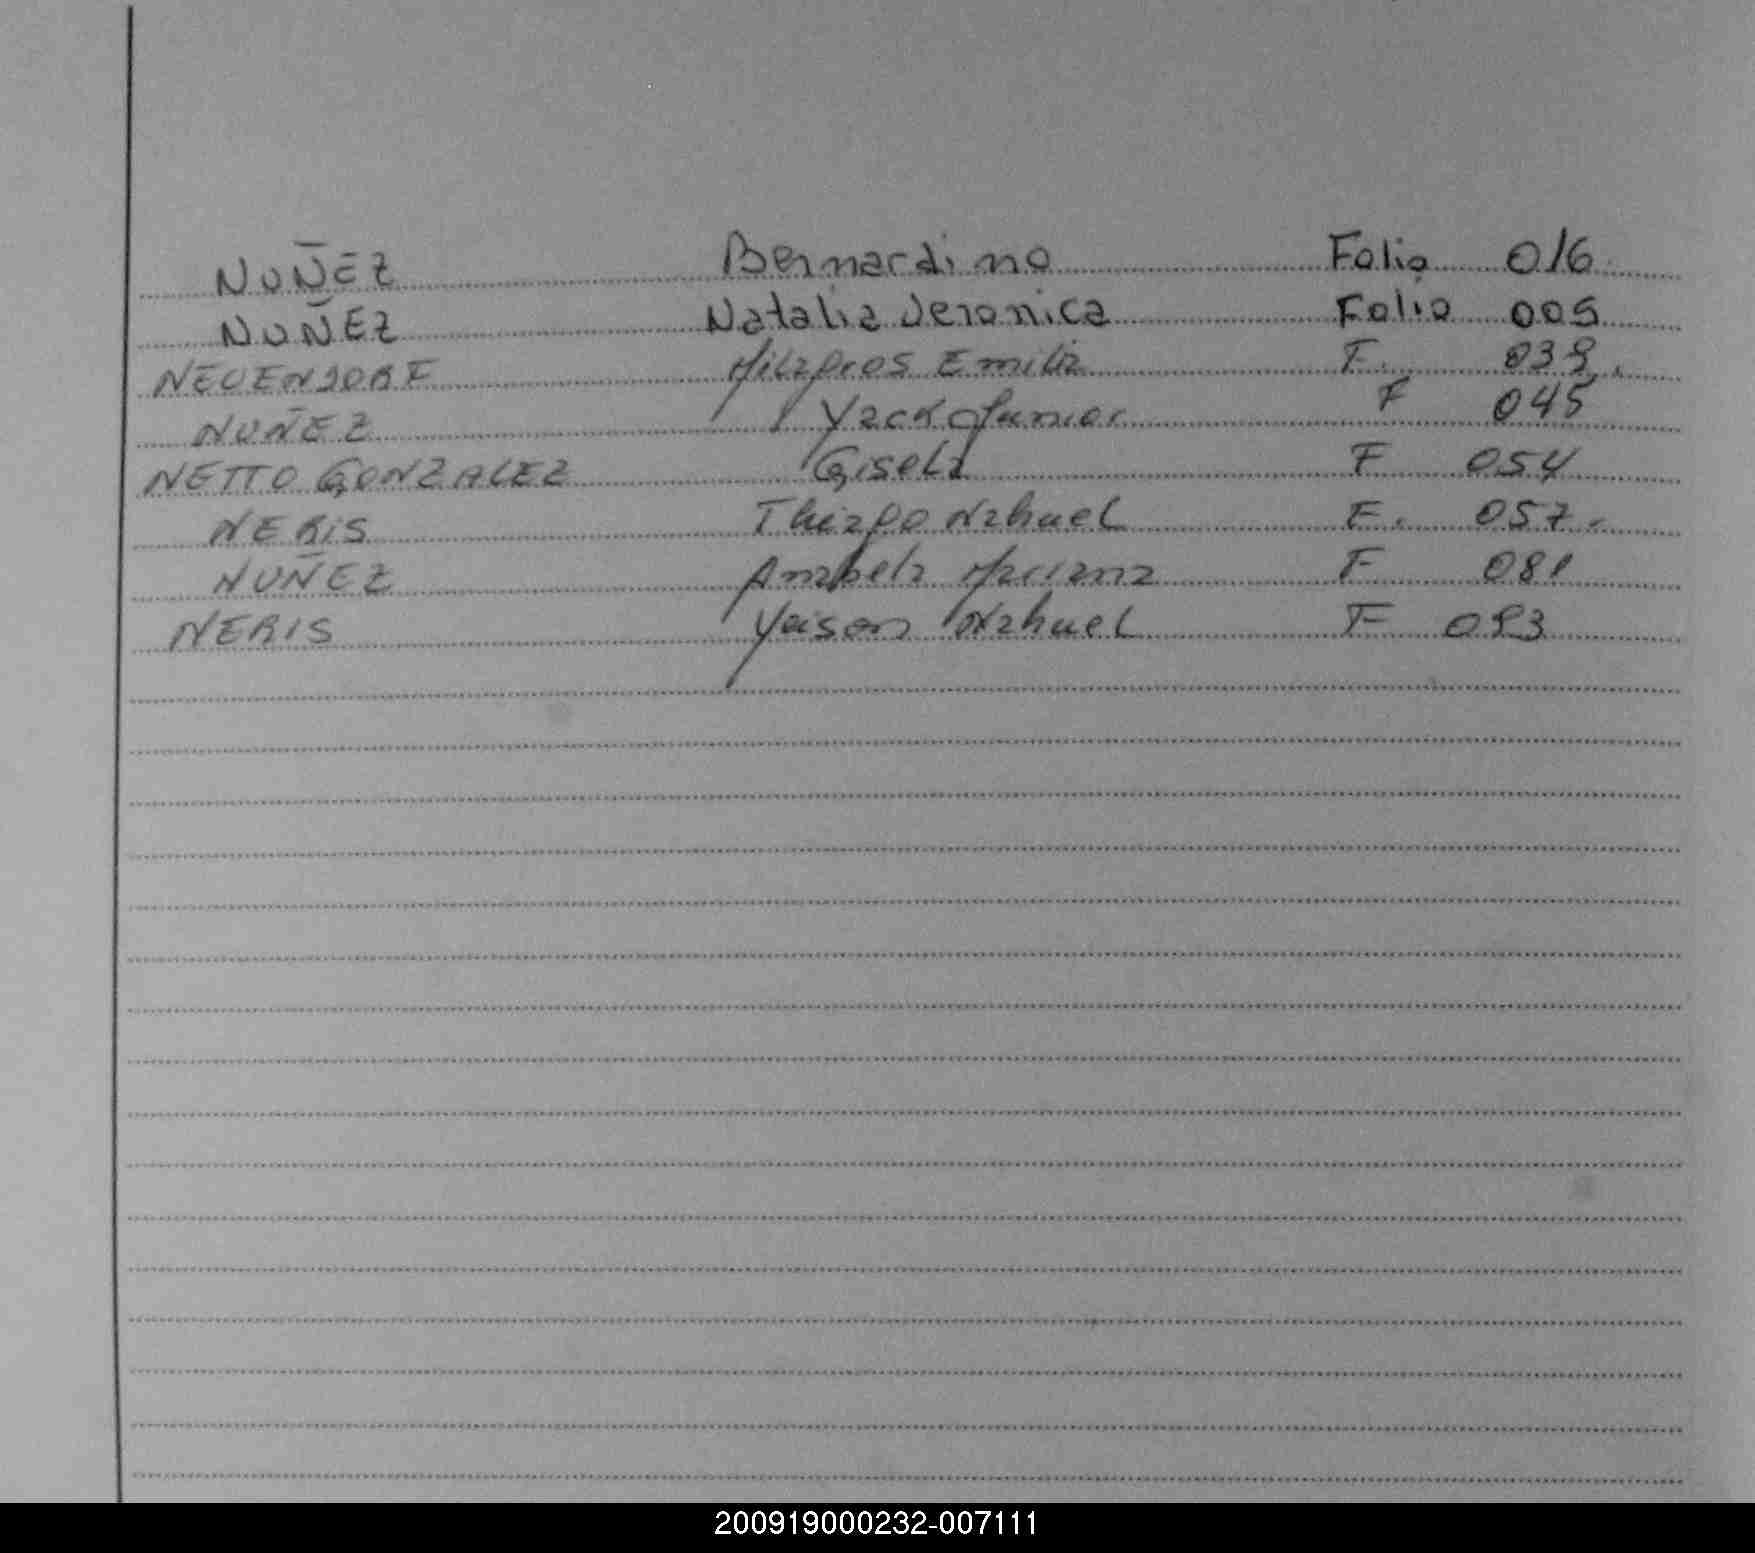 NUÑEZ Bernardino Folio 016
NUÑEZ Natalia Veronica Folio 005
NEUENDORF Milagros Emilia F. 039.
NUÑEZ Yack Junior F 045
NETTO GONZALEZ Gisela F 054
NERIS Thiago Nahuel F. 057.
NUÑEZ Anabela Mariana F 081
NERIS Yeison Nahuel F 093
200919000232-007111